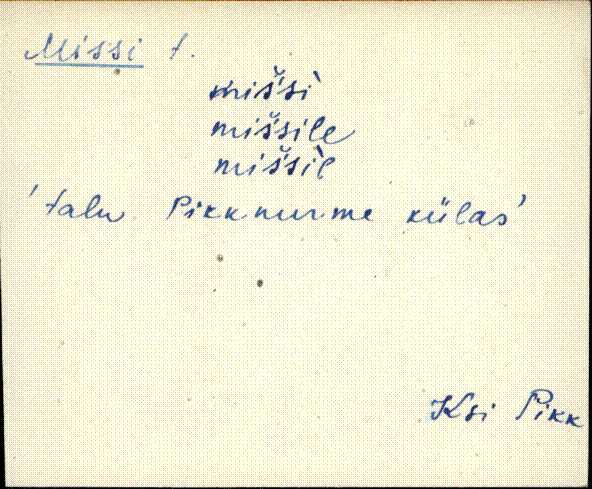 Missi t.
miš́śì
miš́śile
miš́śìl
'talu Pikknurme külas'
Ksi Pikk